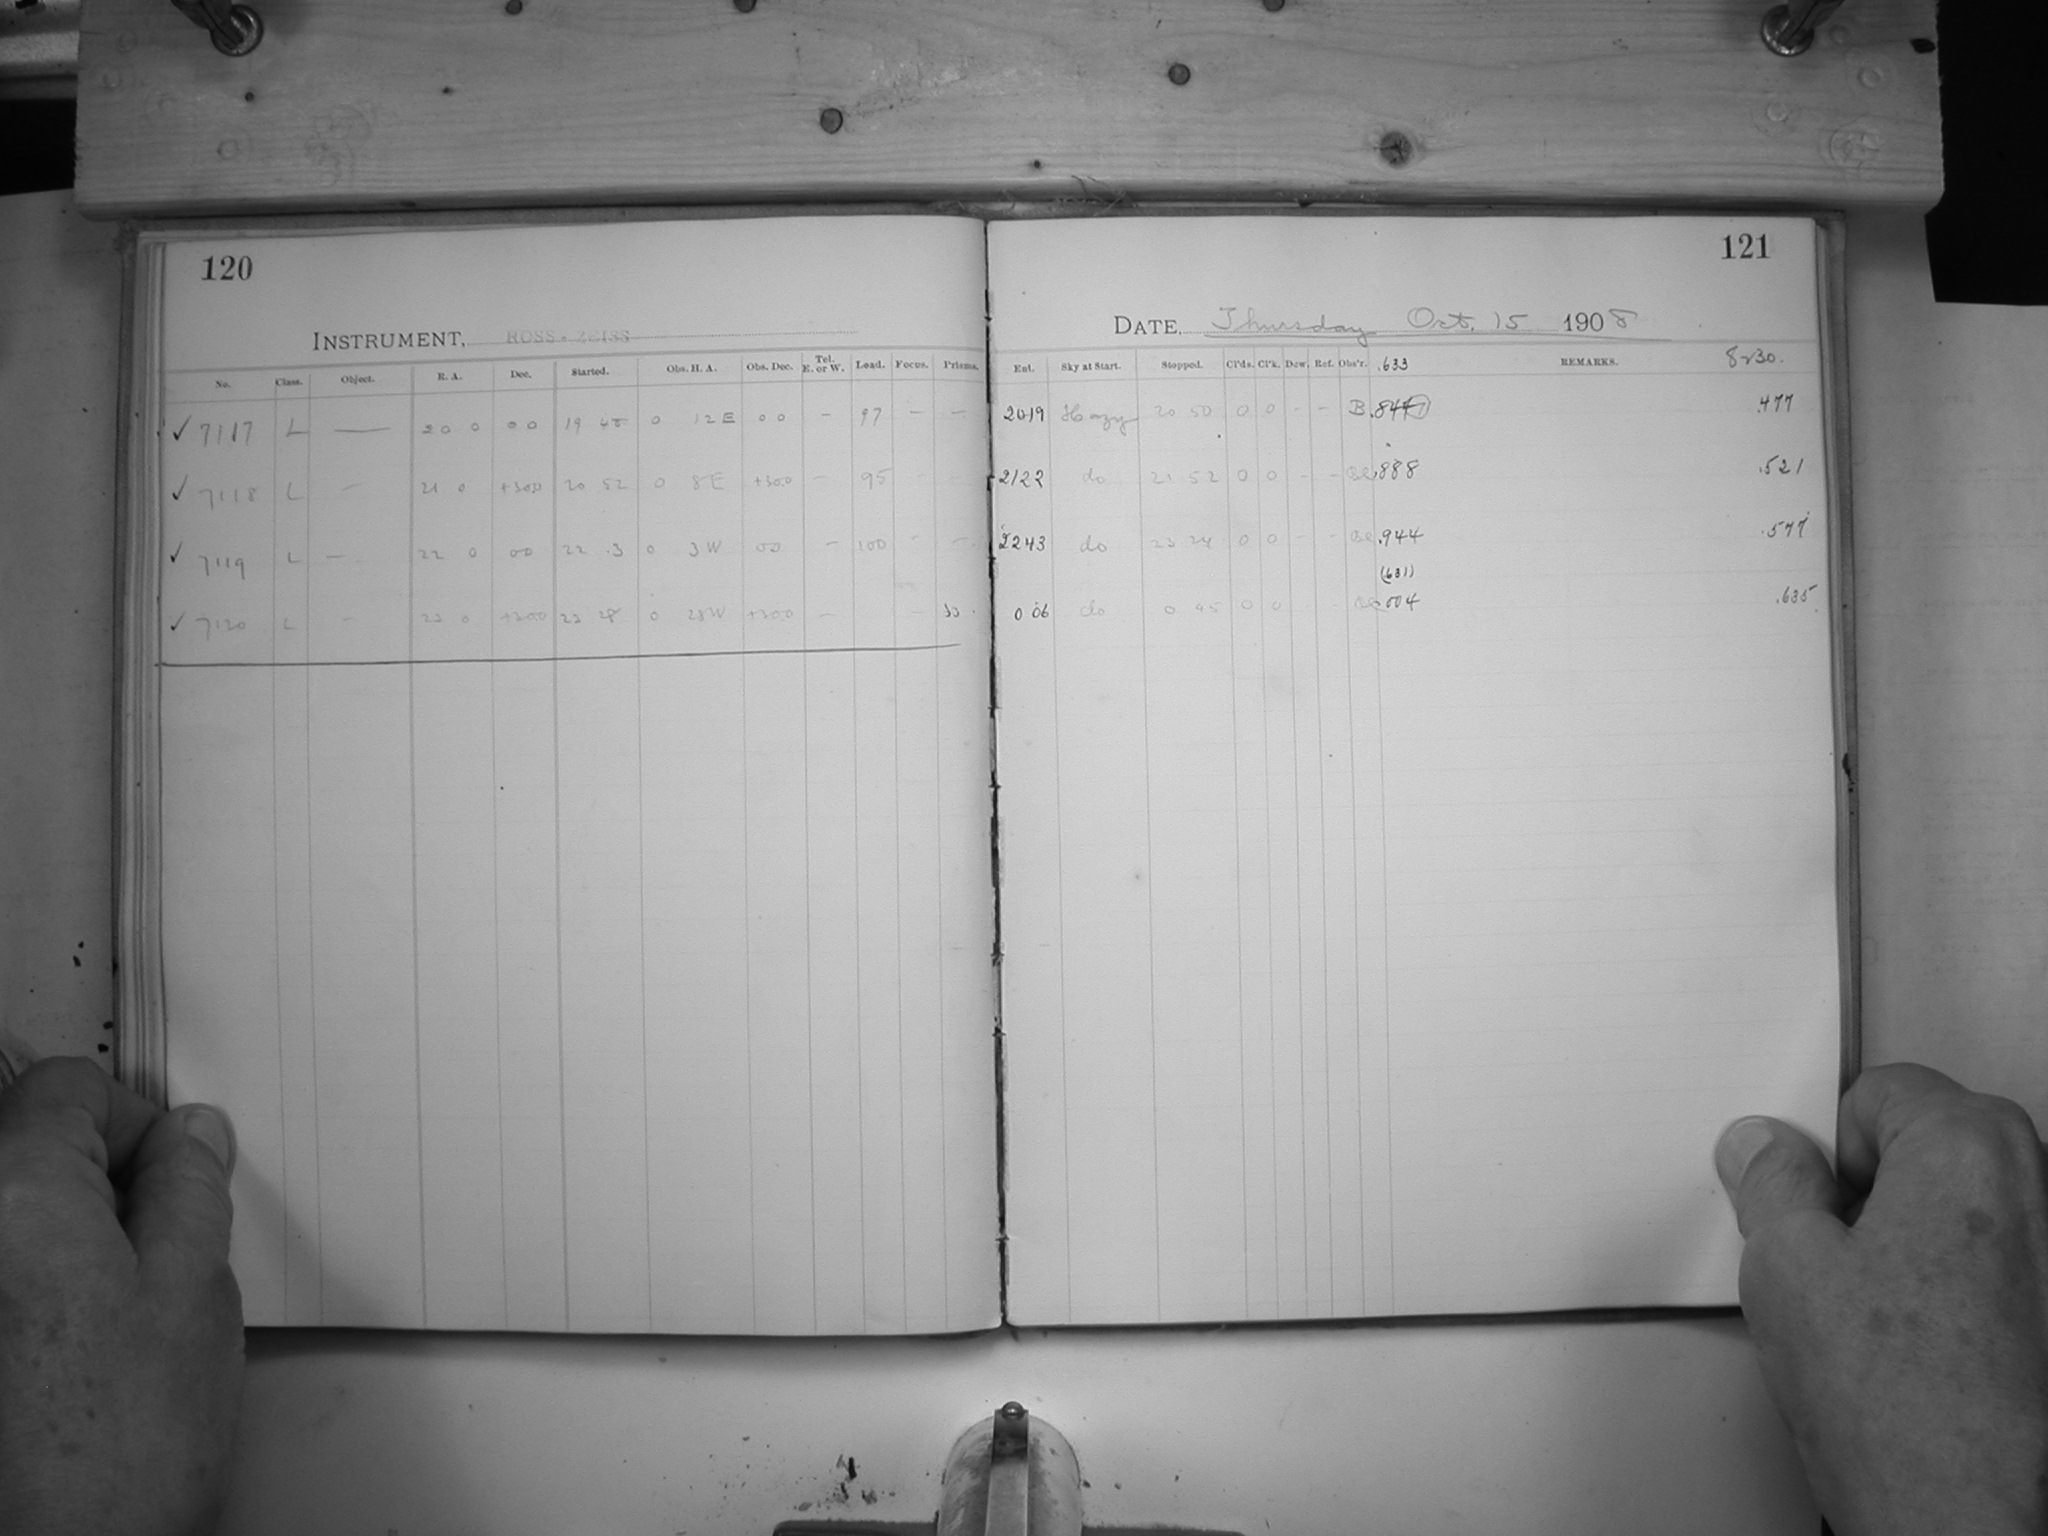 120
INSTRUMENT, ROSS-ZEISS
No. Class. Object. R. A. Dec. Started. Obs. H. A. Obs. Dec. Tel. E. or W. Load. Focus. Prisms.
✓ 7117 L — 20 0 0 0 19 48 0 12 E 0 0 – 97 – –
✓ 7118 L – 21 0 +30 0 20 52 0 8 E +30 0 – 95 –
✓ 7119 L – 22 0 0 0 22 3 0 3 W 0 0 – 100 – –
✓ 7120 L – 23 0 +30 0 23 28 0 28 W +30 0 – –
121
DATE, Thursday Oct. 15 1908
Ent. Sky at Start. Stopped. Cl'ds. Cl'k. Dew. Ref. Obs'r. .633 REMARKS. 8230.
2019 Hazy 20 50 0 0 - - B .844 .477
2122 do 21 52 0 0 - - .888 .521
2243 do 23 24 0 0 - - .944 .577
(631)
0 06 do 0 45 0 0 - .004 .635